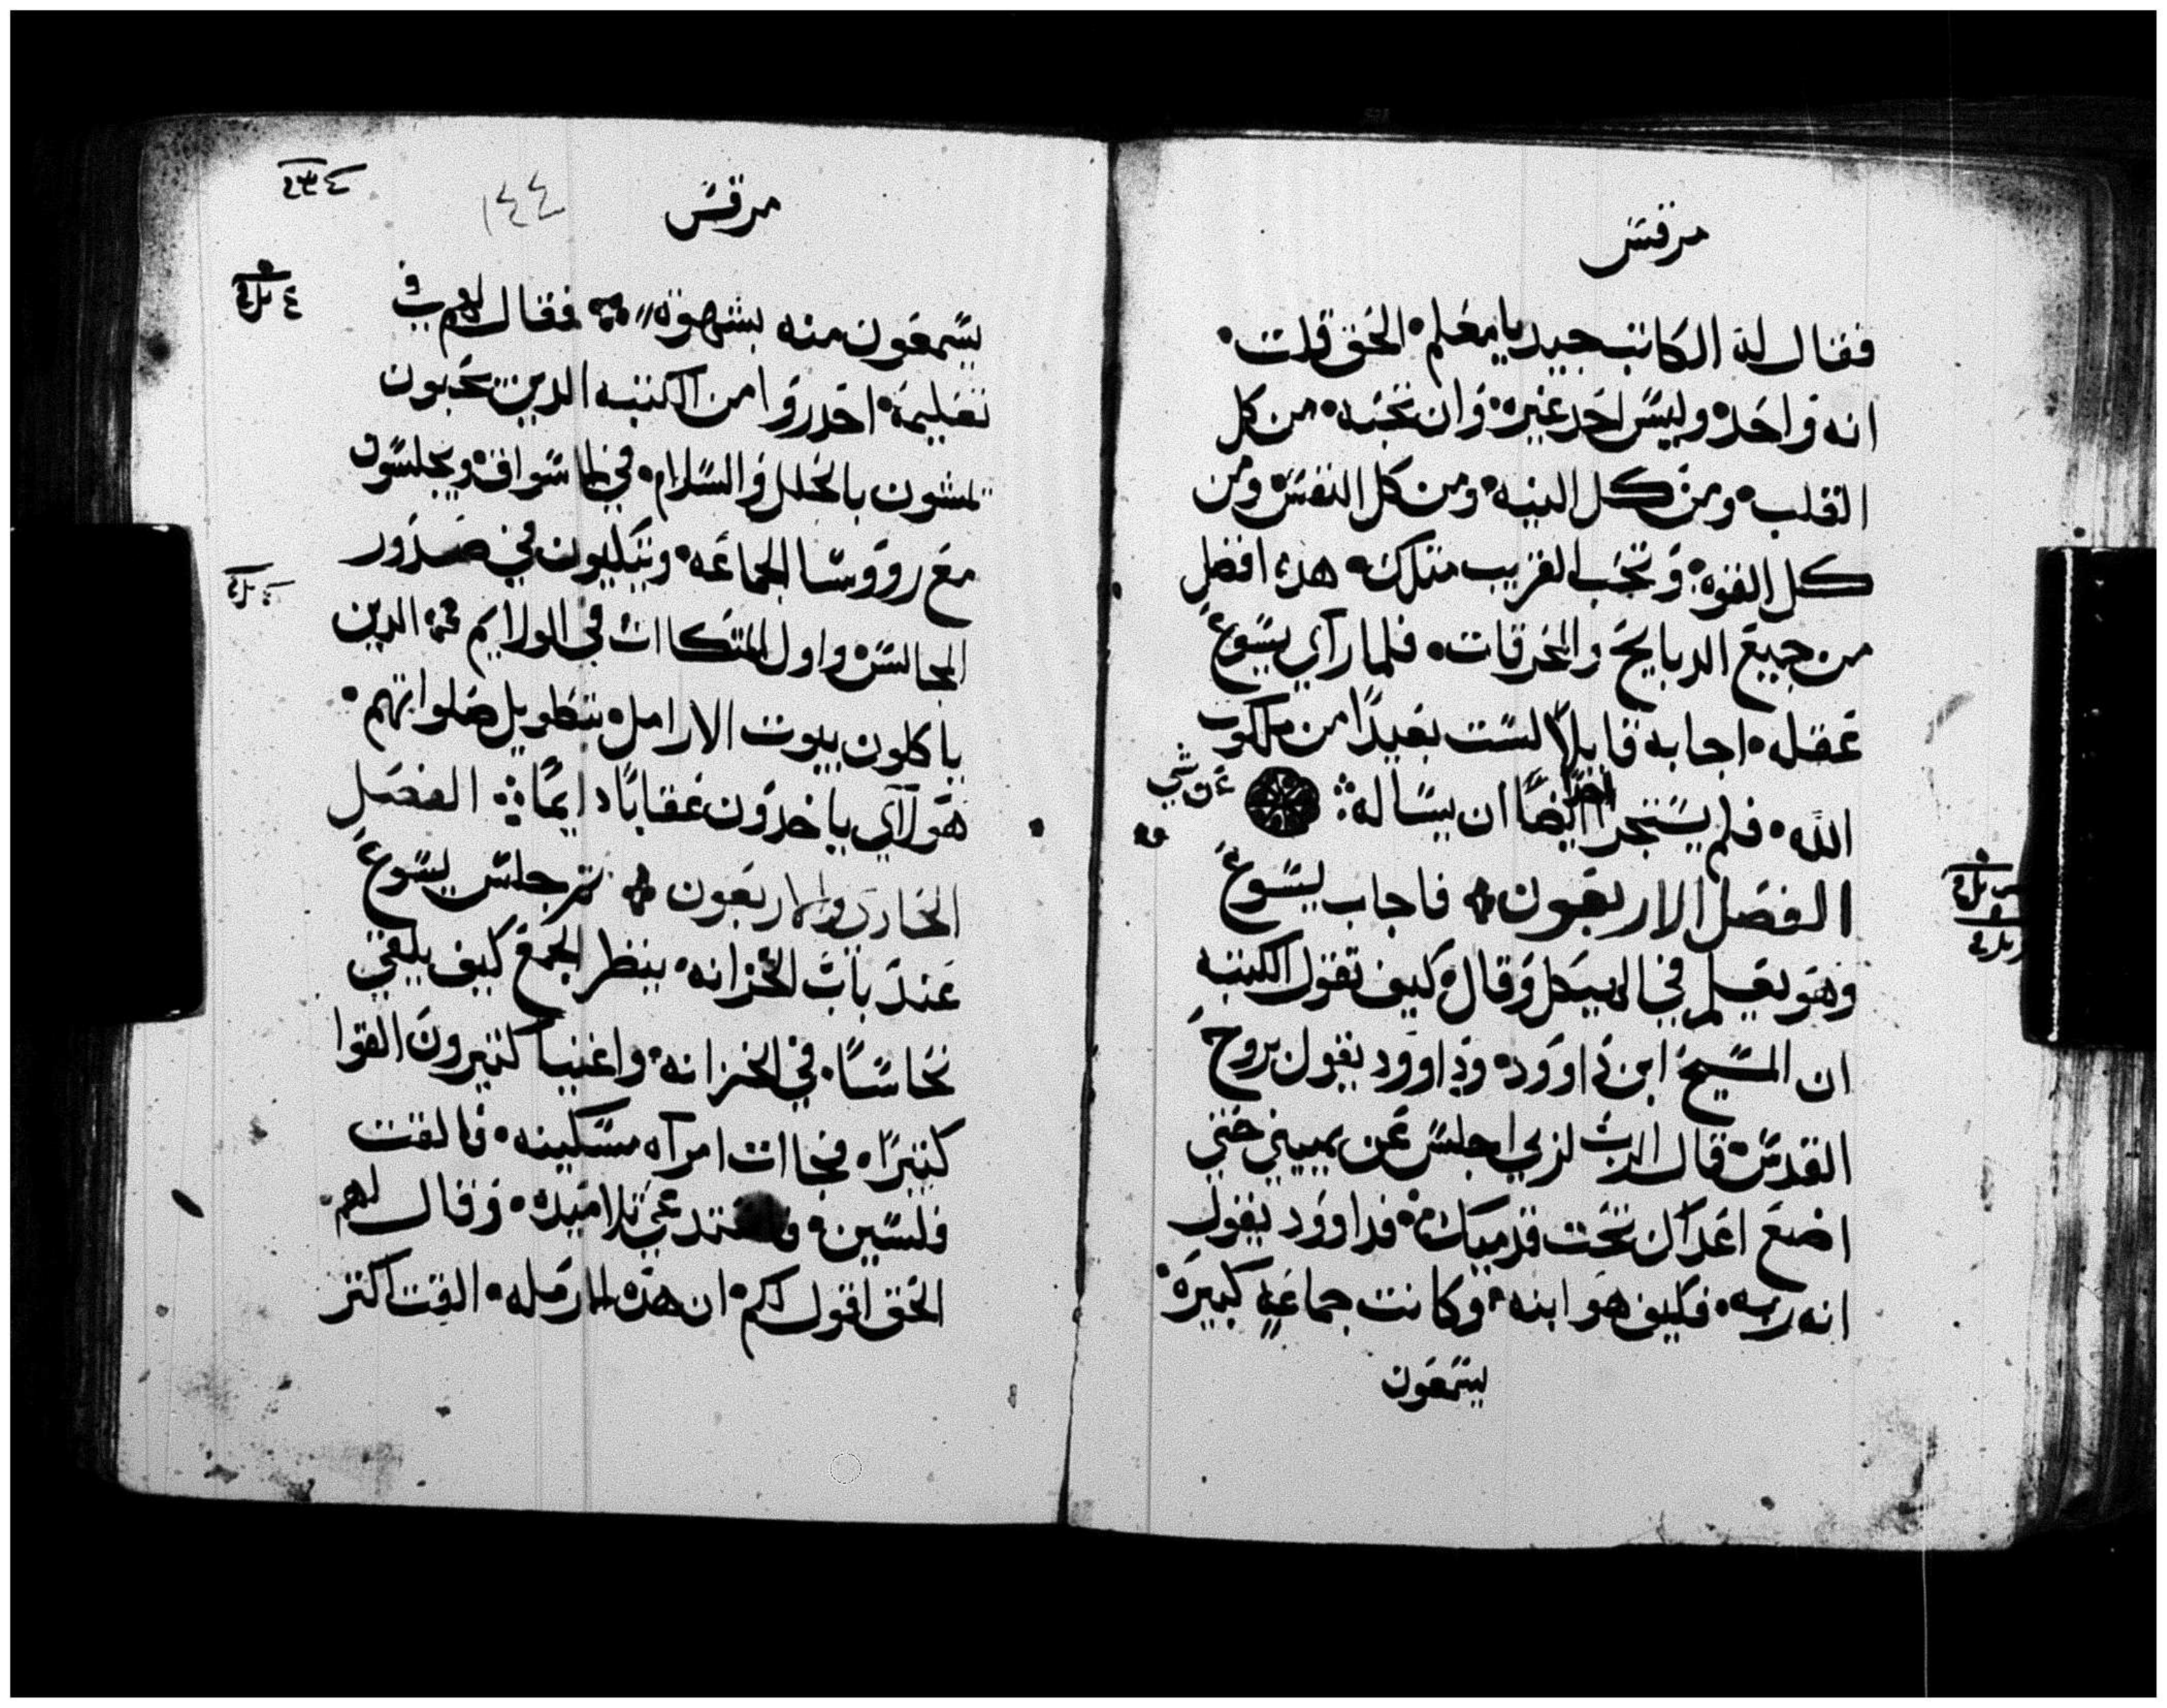 مرقس
فقال له الكاتب جيد يا معلم الحق قلت
انه واحد وليس احد غيره وان تحبه من كل
القلب ومن كل النيه ومن كل النفس ومن
كل القوه وتحب القريب متلك هدا افضل
من جميع الدبايح والمحرقات فلما راي يسوع
عقله اجابه قايلاً لست بعيداً من ملكوت
الله فلم يستجرا احدًا ايضًا ان يساله
الفصل الاربعون فاجاب يسوع
وهو يعلم في الهيكل وقال كيف تقول الكتبه
ان المسيح ابن داوود وداوود يقول بروح
القدس قال الرب لربي اجلس عن يميني حتي
اضع اعداك تحت قدميك فداوود يقول
انه ربه فكيف هو ابنه وكانت جماعه كبيره
يسمعون
مرقس
١٤٤
يسمعون منه بشهوه فقال لهم في
تعليمه احدروا من الكتبه الدين يحبون
يمشون بالحلل والسلام في الاسواق ويجلسون
مع رووسا الجماعه ويتكيون في صدور
المجالس واول المتكاات في الولايم الدين
ياكلون بيوت الارامل بتطويل صلواتهم
هولاي ياخدون عقاباً دايماً الفصل
الحادي والاربعون تم جلس يسوع
عند باب الخزانه ينظر الجمع كيف يلقي
نحاساً في الخزانه واغنيا كتيرون القوا
كتيراً فجاات امراه مسكينه فالقت
فلسين تلاميده وقال لهم
الحق اقول لكم ان هده الارمله القت اكتر